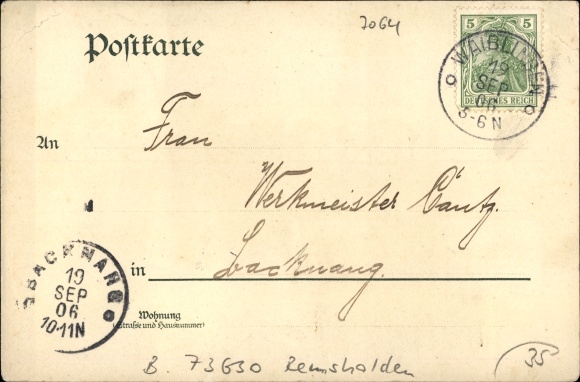 7064
Postkarte
5 5
DEUTSCHES REICH
WAIBLINGEN
19
SEP
06
5-6 N
An
Frau
Werkmeister Cantz.
in Backnang.
BACKNANG
19
SEP
06
10-11N
Wohnung
(Straße und Hausnummer)
B. 73630 Remshalden
35